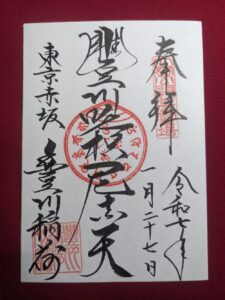 奉拝
令和七年
一月二十七日
豐川吒枳尼真天
東京赤坂
豊川稲荷